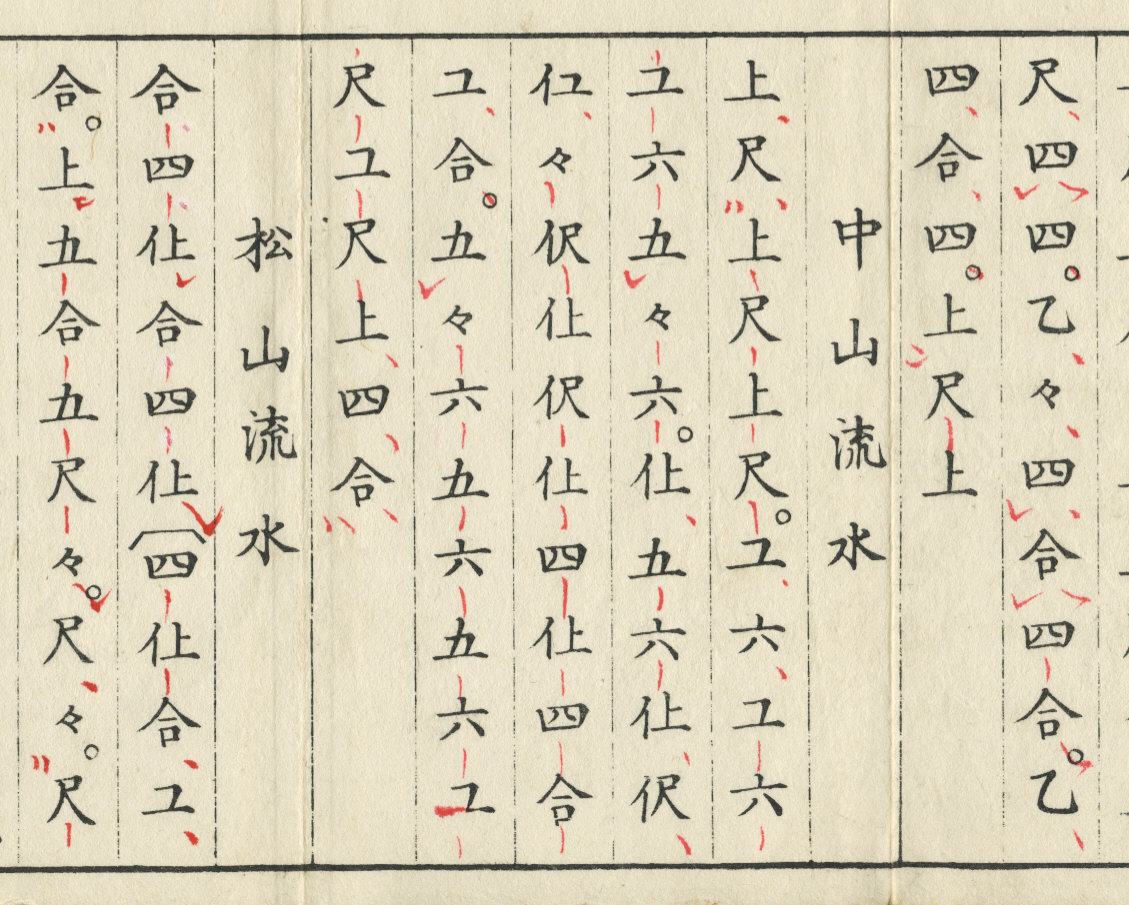 尺四四。乙々四合四合。乙
四合四。上尺上
中山流水
上尺上尺上尺。工六工六
工六五々六。仩五六仩伬
仜々伬仩伬仩四仩四合
工合。五々六五六五六工
尺工尺上四合
松山流水
合四仩合四仩四仩合工
合。上五合五尺々。尺々。尺